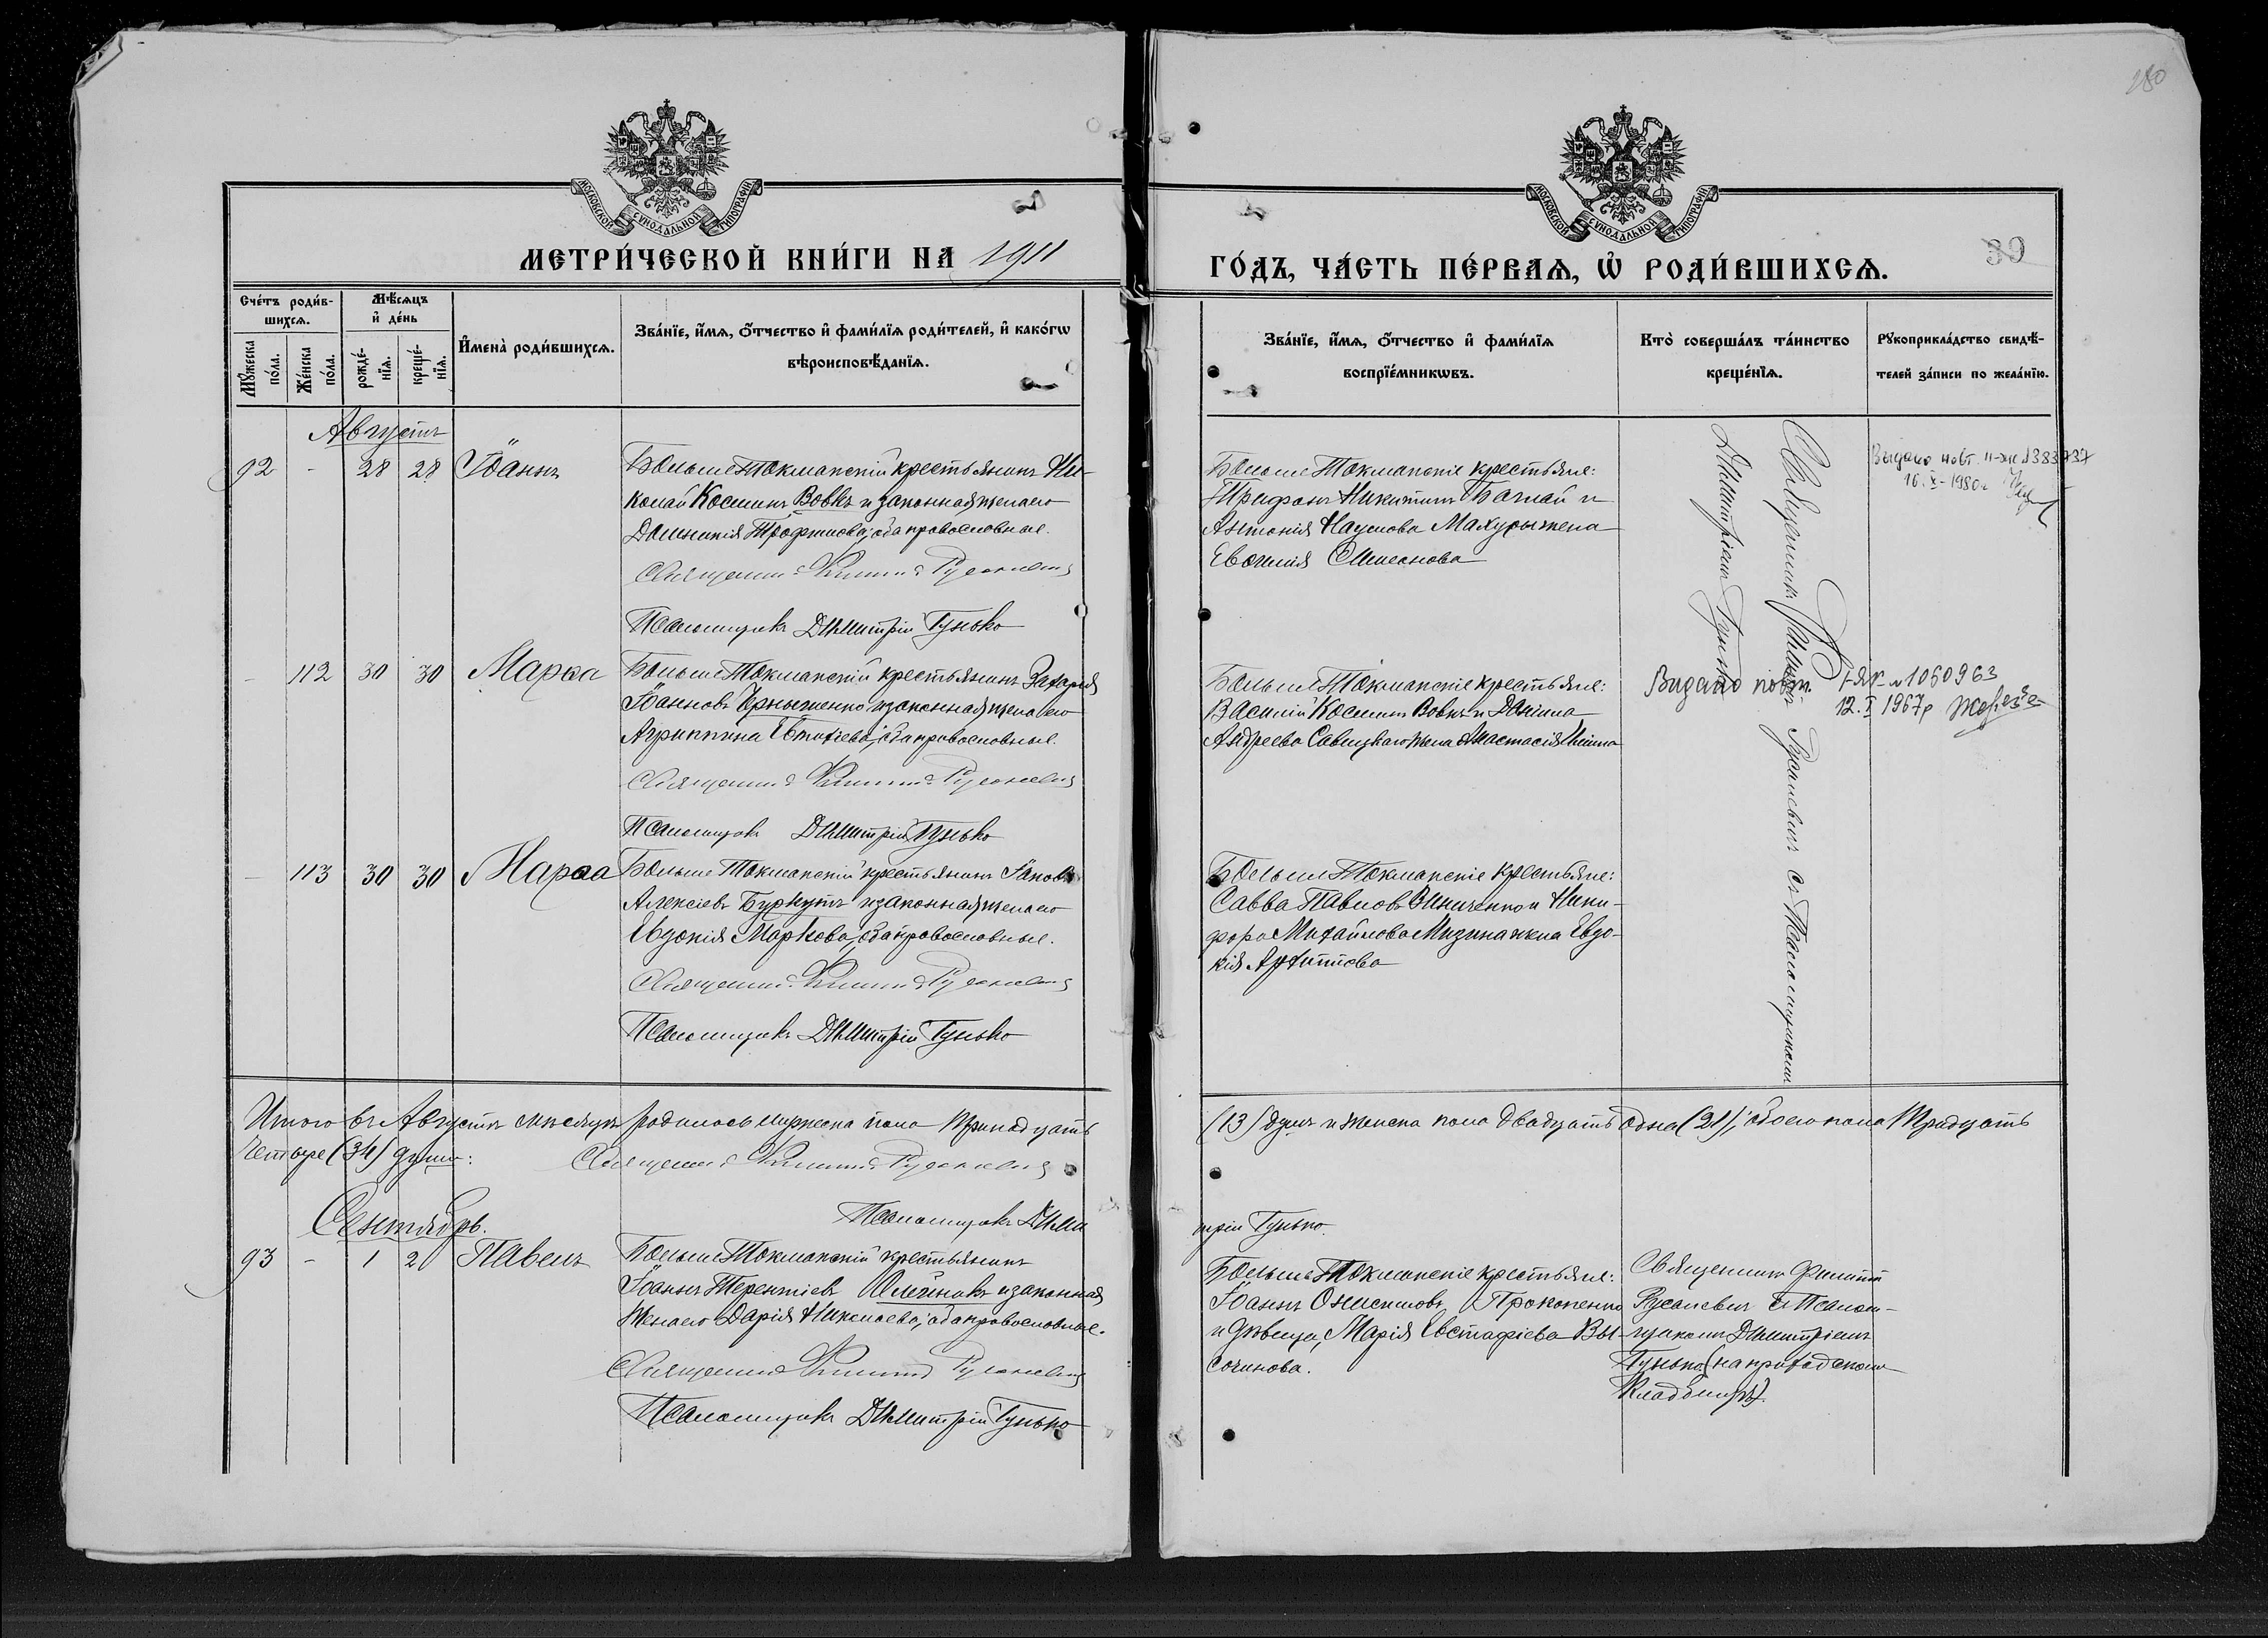 180
МОСКОВСКОЙ СѴНОДАЛЬНОЙ ТИПОГРАФІИ
МОСКОВСКОЙ СѴНОДАЛЬНОЙ ТИПОГРАФІИ
МЕТРИ́ЧЕСКОЙ КНИ́ГИ НА 1911
ГО́ДЪ, ЧА́СТЬ ПЕ́РВАѦ, Ѡ҆ РОДИ́ВШИХСѦ.
30
Сче́тъ роди́в-
шихсѧ.
Мꙋ́жеска
по́ла.
Же́нска
по́ла.
Мѣ́сѧцъ
и҆ де́нь
рожде́-
нїѧ.
креще́-
нїѧ.
И҆мена̀ роди́вшихсѧ.
Зва́нїе, и҆́мѧ, ѻ҆́тчество и҆ фами́лїѧ роди́телей, и҆ како́гѡ
вѣроисповѣ́данїѧ.
Зва́нїе, и҆́мѧ, ѻ҆́тчество и҆ фами́лїѧ
воспрїе́мникѡвъ.
Кто̀ соверша́лъ та́инство
креще́нїѧ.
Рꙋкоприкла́дство свидѣ́-
телей за́писи по жела́нїю.
Августъ
92 - 28 28 Іоаннъ
Больше Токмакскій крестьянинъ Ни-
колай Космин Вовкъ и законная жена его
Домникія Трофимова, оба православные.
Священникъ Филиппъ Русаневичъ
Псаломщикъ Димитрій Гунько
Больше Токмакскіе крестьяне:
Трифонъ Никитинъ Баглай и
Антонія Наумова жена
Евфимія
Выдано повт.
16.X-1980г
- 112 30 30 Марѳа
Больше Токмакскій крестьянинъ Захарія
Іоанновъ и законная жена его
Агриппина Евтихіева, оба православные.
Священникъ Филиппъ Русаневичъ
Псаломщикъ Димитрій Гунько
Больше Токмакскіе крестьяне:
Василій Космин Вовкъ и Даніила
Андреева Савицкаго жена Анастасія
Видано повт. I-ЯК № 1060963
12.I 1967р
- 113 30 30 Марѳа
Больше Токмакскій крестьянинъ Іаковъ
Алексіевъ Буркутъ и законная жена его
Евдокія Маркова, оба православные.
Священникъ Филиппъ Русаневичъ
Псаломщикъ Димитрій Гунько
Больше Токмакскіе крестьяне:
Савва Павловъ и Ники-
фора Михайлова жена Евдо-
кія Архиппова
Священникъ Филиппъ Русаневичъ съ Псаломщикомъ
Димитріемъ Гунько
Итого въ Августѣ мѣсяцѣ родилось мужеска пола тринадцать
(13) душъ и женска пола двадцать одна (21), обоего пола тридцать
четыре (34) души:
Священникъ Филиппъ Русаневичъ
Псаломщикъ Дими
трій Гунько.
Сентябрь.
93 - 1 2 Павелъ
Больше Токмакскій крестьянинъ
Іоаннъ Терентіевъ Олейникъ и законная
жена его Дарія Николаева; оба православные.
Священникъ Филиппъ Русаневичъ
Псаломщикъ Димитрій Гунько
Больше Токмакскіе крестьяне:
Іоаннъ Онисимовъ Прокопенко
и дѣвица, Марія Евстафіева Вы-
сочинова.
Священникъ Филиппъ
Русаневичъ съ Псалом-
щикомъ Димитріемъ
Гунько (на приходскомъ
кладбищѣ).